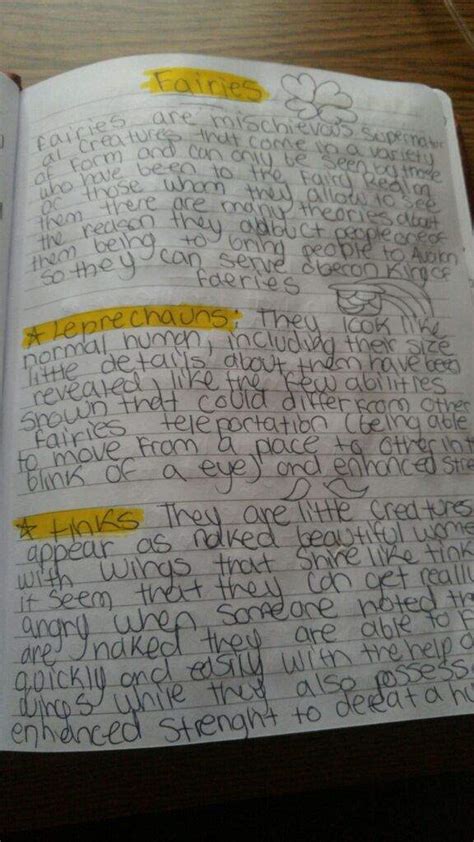 Fairies
Fairies are mischievous supernatur
al creatures that come in a variety
of form and can only be seen by those
who have been to the Fairy Realm
or those whom they allow to see
them there are many theories about
the reason they abduct people one of
them being to bring people to Avalon
so they can serve Oberon King of
faeries
* Leprechauns: They look like
normal human, including their size
little details about them have been
revealed, like the few abilities
shown that could differ from other
fairies teleportation (being able
to move from a place to other in
blink of a eye) and enhanced stre
* tinks They are little creatures
appear as naked beautiful wome
with wings that shine like tink
it seem that they can get really
angry when someone noted th
are naked they are able to f
quickly and easily with the help o
wings while they also possess
enhanced strenght to defeat a hu